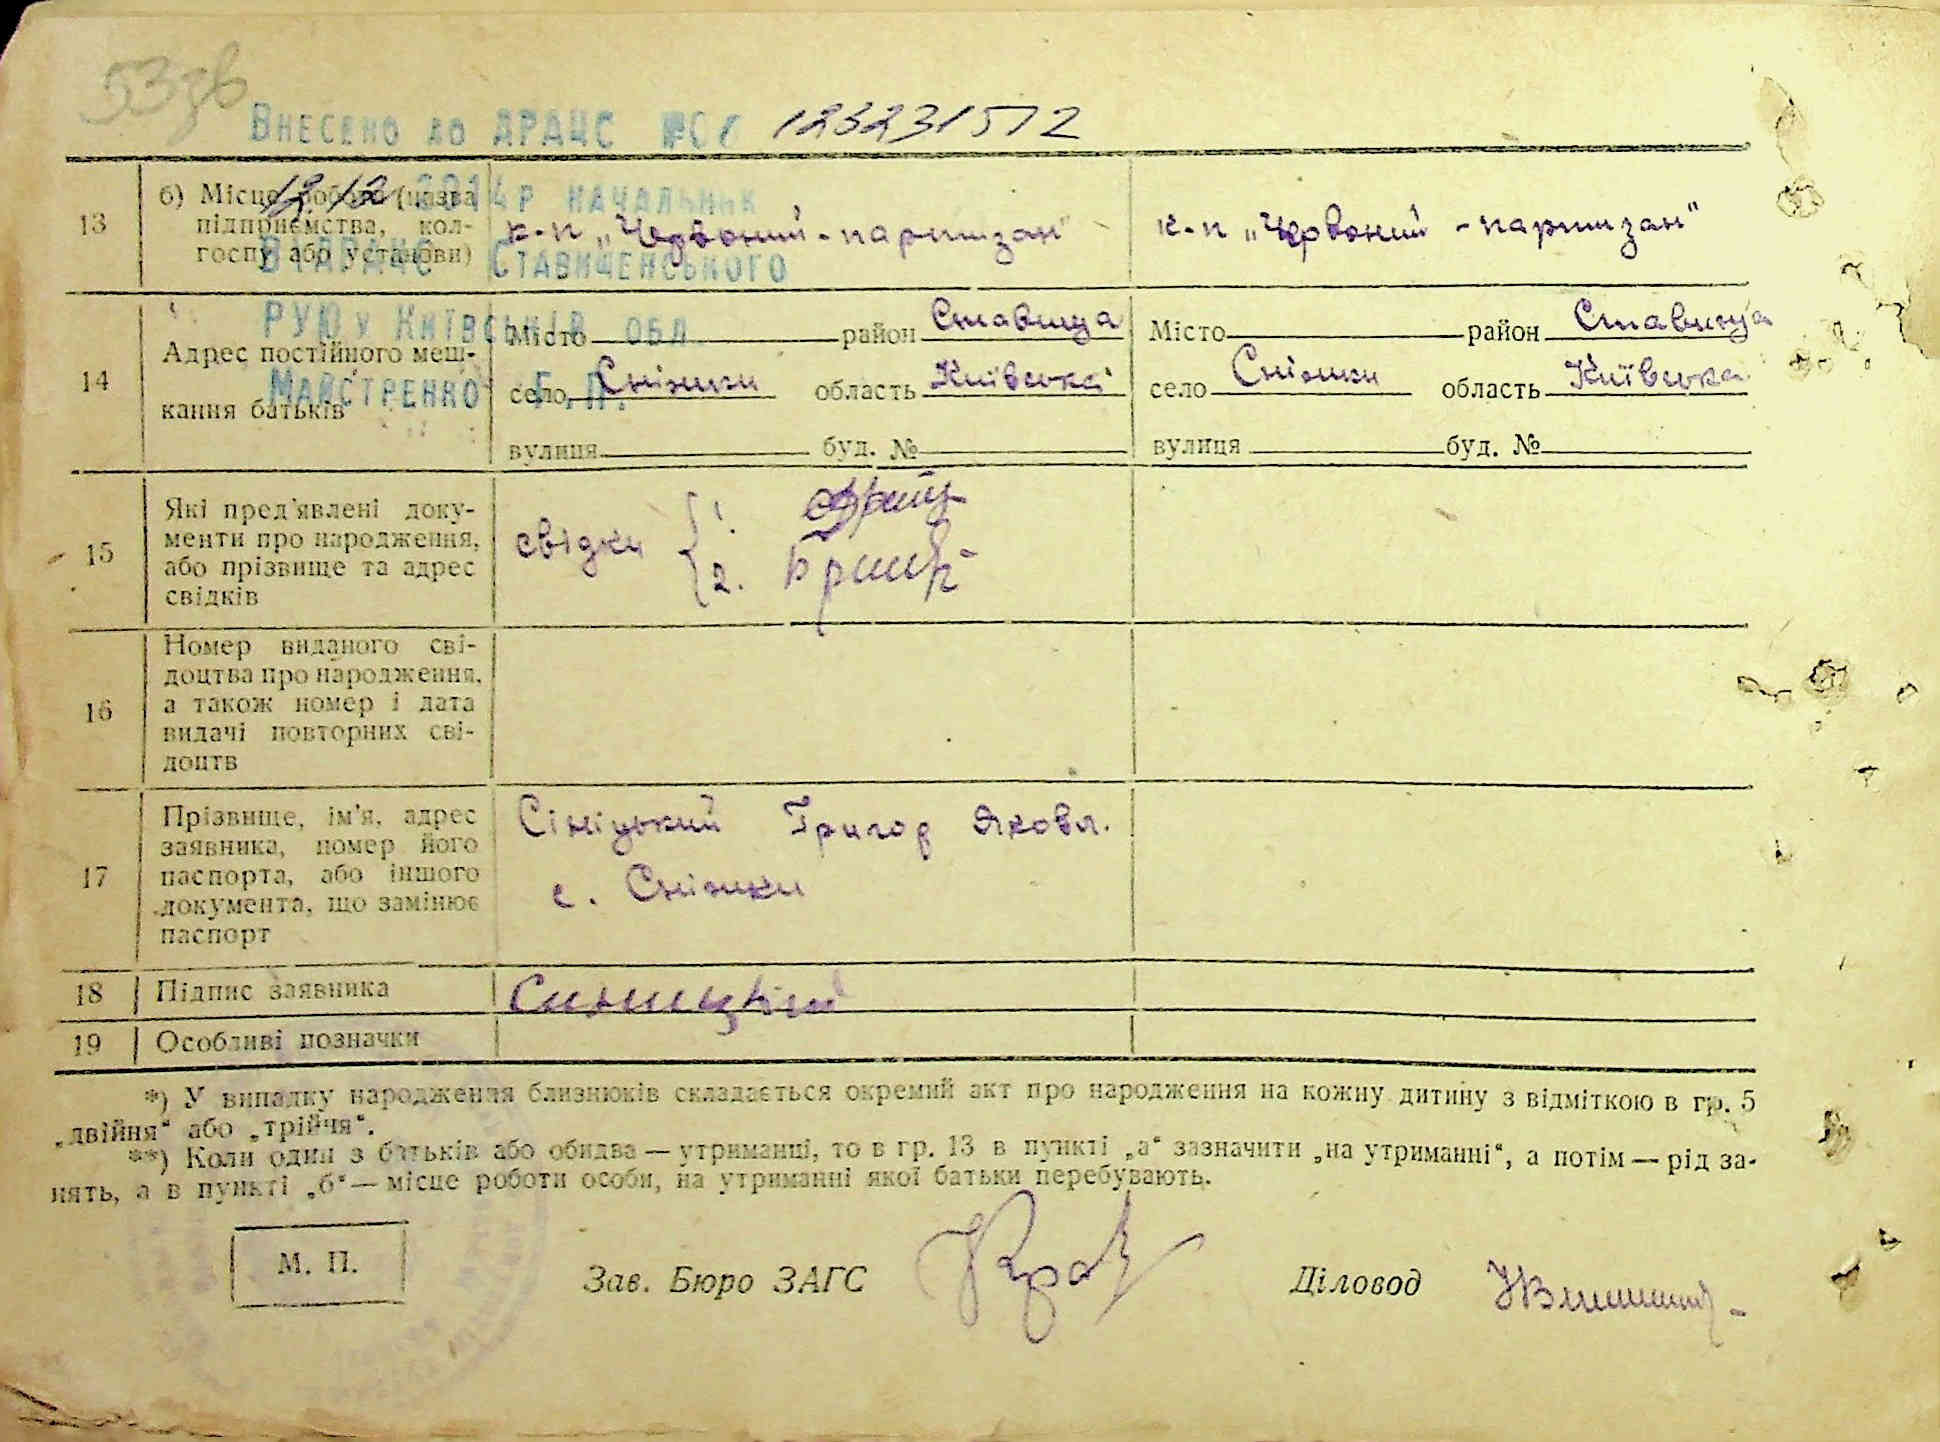 53зв
Внесено до ДРАЦС № 123231572
12.12.2014р начальник
ВДРАЦС Ставищенського
РУЮ у Київській обл
Майстренко Г.П.
13
б) Місце роботи (назва
підприємства, кол-
госпу або установи)
к-п „Червоний-партизан"
к-п „Червоний-партизан"
14
Адрес постійного меш-
кання батьків
Місто район Ставища
село Сніжки область Київська
вулиця буд. №
Місто район Ставища
село Сніжки область Київська
вулиця буд. №
15
Які пред'явлені доку-
менти про народження,
або прізвище та адрес
свідків
свідки
1.
2.
16
Номер виданого сві-
доцтва про народження,
а також номер і дата
видачі повторних сві-
доцтв
17
Прізвище, ім'я, адрес
заявника, номер його
паспорта, або іншого
документа, що замінює
паспорт
Сініцький Григор Яковл.
с. Сніжки
18
Підпис заявника
Синицкий
19
Особливі позначки
*) У випадку народження близнюків складається окремий акт про народження на кожну дитину з відміткою в гр. 5
„двійня" або „трійчя".
**) Коли один з батьків або обидва — утриманці, то в гр. 13 в пункті „а" зазначити „на утриманні", а потім — рід за-
нять, а в пункті „б" — місце роботи особи, на утриманні якої батьки перебувають.
М. П.
Зав. Бюро ЗАГС
Діловод